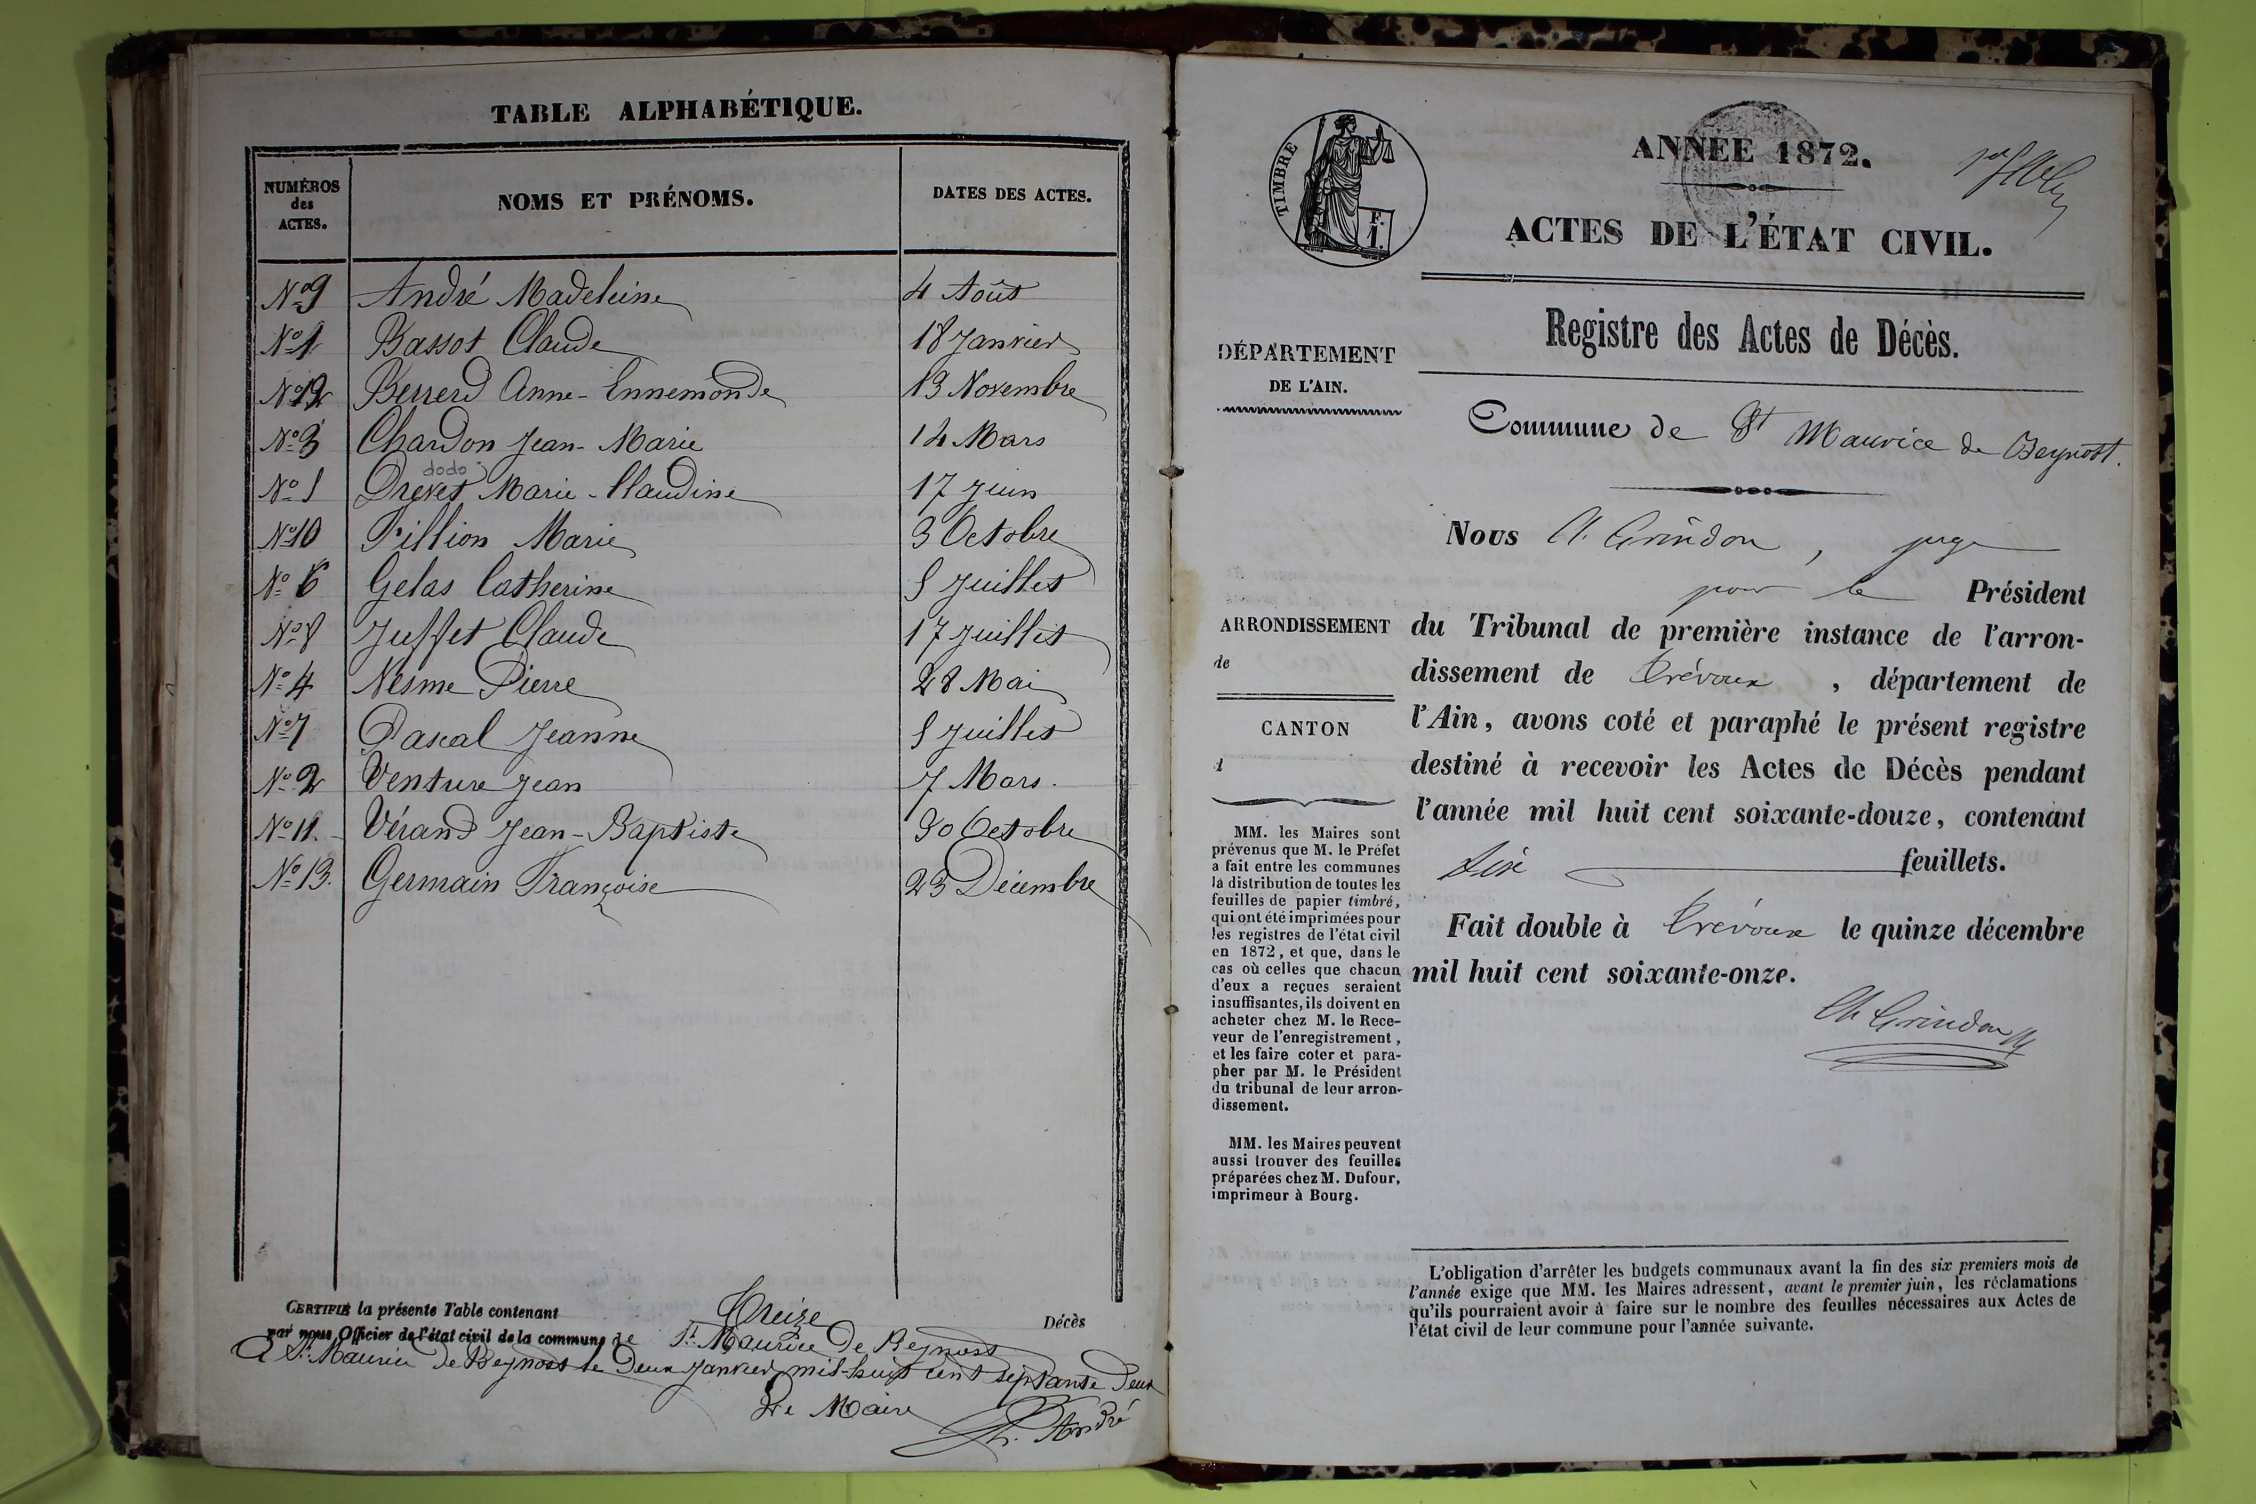 TABLE ALPHABÉTIQUE.
NUMÉROS des ACTES. NOMS ET PRÉNOMS. DATES DES ACTES.
No 9 André Madeleine 4 Août
No 1 Bassot Claude 18 Janvier
No 12 Berrerd Anne-Ennemonde 13 Novembre
No 3 Chardon Jean-Marie 14 Mars
dodo
No 5 Drevet Marie-Claudine 17 Juin
No 10 Fillion Marie 3 Octobre
No 6 Gelas Catherine 5 Juillet
No 8 Juffet Claude 17 Juillet
No 4 Nesme Pierre 28 Mai
No 7 Pascal Jeanne 5 Juillet
No 2 Venture Jean 7 Mars.
No 11. Vérand Jean-Baptiste 30 Octobre
No 13. Germain Françoise 23 Décembre
CERTIFIÉ la présente Table contenant Treize Décès
par nous Officier de l'état civil de la commune de St Maurice de Beynost
A St Maurice de Beynost le Deux Janvier mil-huit cent septante deux
Le Maire
André
TIMBRE
F.
I.
ANNÉE 1872.
ACTES DE L'ÉTAT CIVIL.
Registre des Actes de Décès.
DÉPARTEMENT
DE L'AIN.
Commune de St Maurice de Beynost.
Nous Ch. Grindon, juge
pour le Président
ARRONDISSEMENT
de
CANTON
d
du Tribunal de première instance de l'arron-
dissement de Trévoux, département de
l'Ain, avons coté et paraphé le présent registre
destiné à recevoir les Actes de Décès pendant
l'année mil huit cent soixante-douze, contenant
dix feuillets.
Fait double à Trévoux le quinze décembre
mil huit cent soixante-onze.
Ch Grindon
MM. les Maires sont
prévenus que M. le Préfet
a fait entre les communes
la distribution de toutes les
feuilles de papier timbré,
qui ont été imprimées pour
les registres de l'état civil
en 1872, et que, dans le
cas où celles que chacun
d'eux a reçues seraient
insuffisantes, ils doivent en
acheter chez M. le Rece-
veur de l'enregistrement,
et les faire coter et para-
pher par M. le Président
du tribunal de leur arron-
dissement.
MM. les Maires peuvent
aussi trouver des feuilles
préparées chez M. Dufour,
imprimeur à Bourg.
L'obligation d'arrêter les budgets communaux avant la fin des six premiers mois de
l'année exige que MM. les Maires adressent, avant le premier juin, les réclamations
qu'ils pourraient avoir à faire sur le nombre des feuilles nécessaires aux Actes de
l'état civil de leur commune pour l'année suivante.